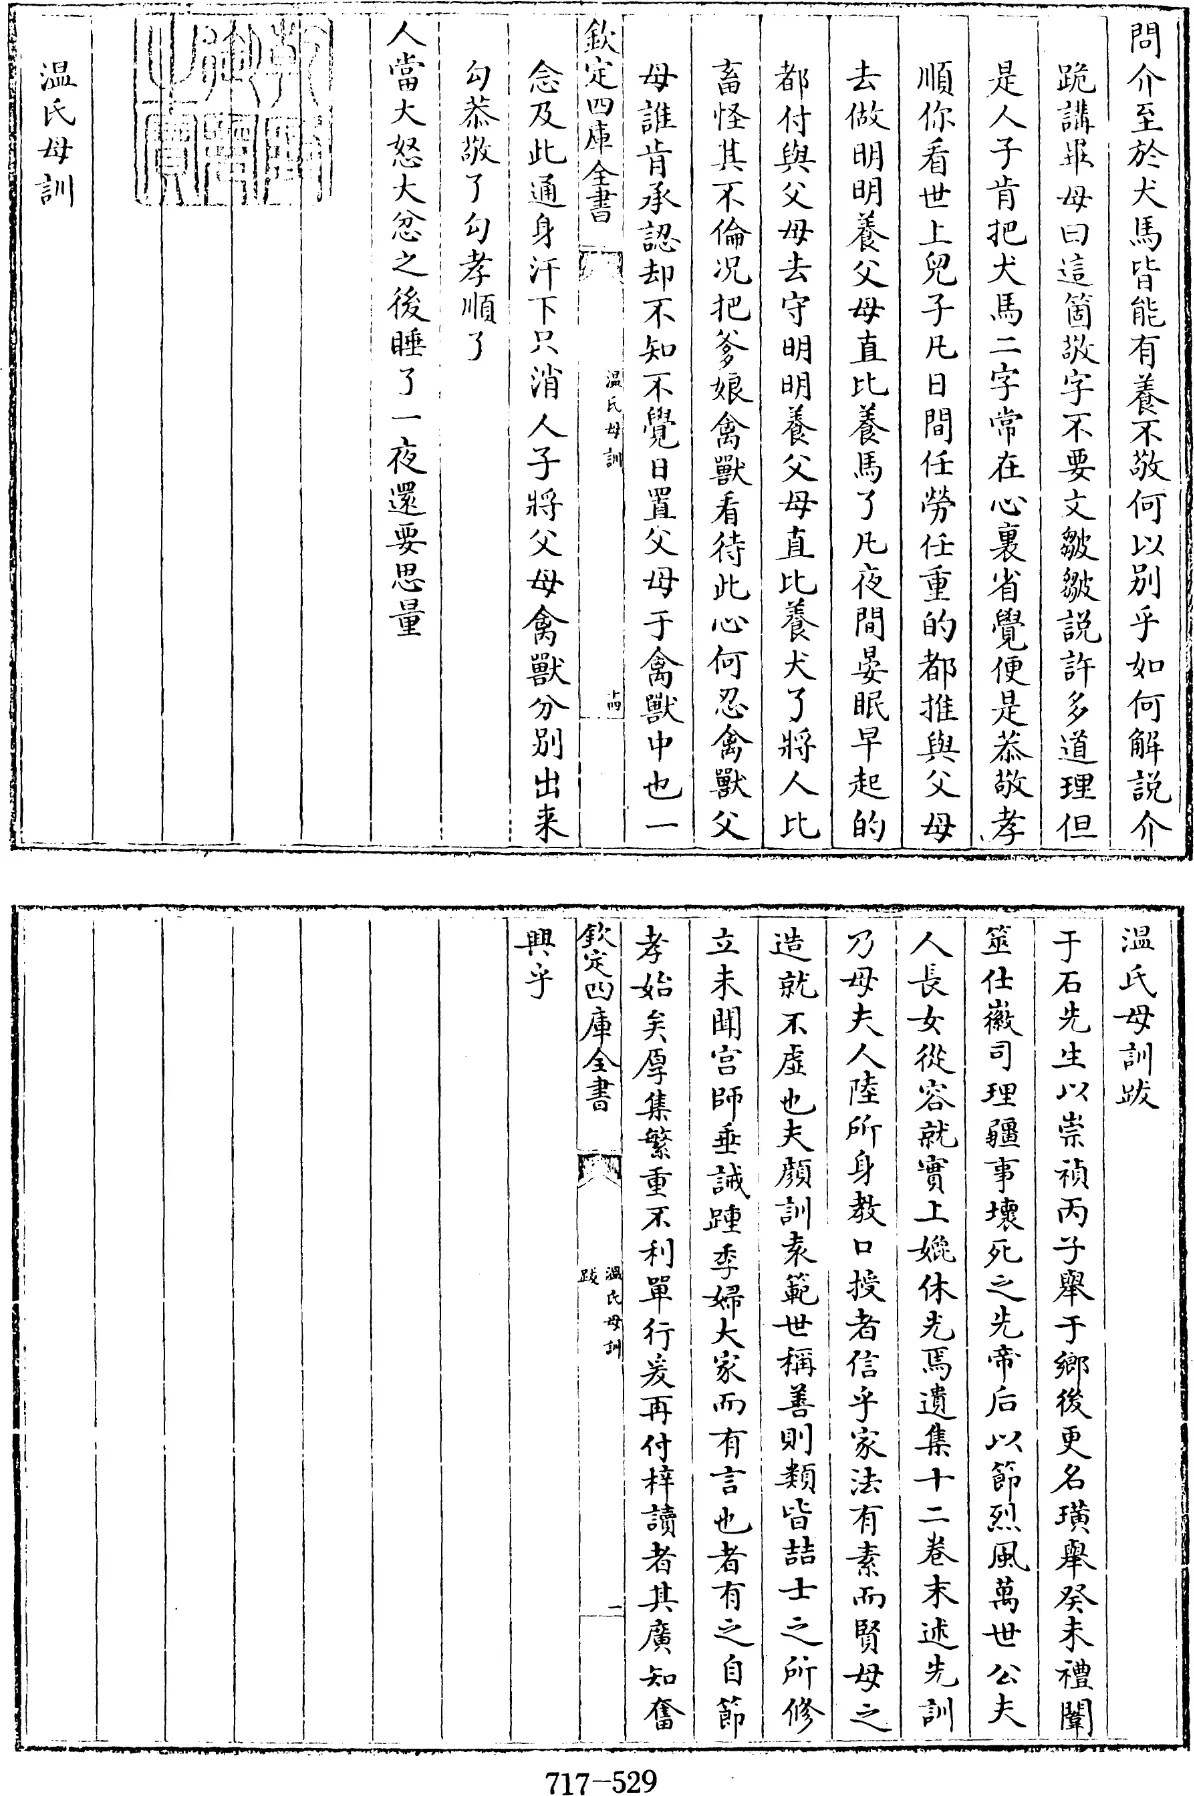 問介至於犬馬皆能有養不敬何以别乎如何解説介
跪講畢母曰這箇敬字不要文皺皺説許多道理但
是人子肯把犬馬二字常在心裏省覺便是恭敬孝
順你看世上兒子凡日間任勞任重的都推與父母
去做明明養父母直比養馬了凡夜間晏眠早起的
都付與父母去守明明養父母直比養犬了將人比
畜怪其不倫况把爹娘禽獸看待此心何忍禽獸父
母誰肯承認却不知不覺日置父母于禽獸中也一
欽定四庫全書
温氏母訓
十四
念及此通身汗下只消人子將父母禽獸分别出来
勾恭敬了勾孝順了
人當大怒大忿之後睡了一夜還要思量
温氏母訓
温氏母訓跋
于石先生以崇禎丙子舉于鄉後更名璜舉癸未禮闈
筮仕徽司理疆事壞死之先帝后以節烈風萬世公夫
人長女從容就實上媲休光焉遺集十二卷末述先訓
乃母夫人陸所身教口授者信乎家法有素而賢母之
造就不虚也夫顔訓袁範世稱善則類皆喆士之所修
立未聞宫師垂誡踵季婦大家而有言也者有之自節
孝始矣厚集繁重不利單行爰再付梓讀者其廣知奮
欽定四庫全書
温氏母訓
跋
一
興乎
717-529